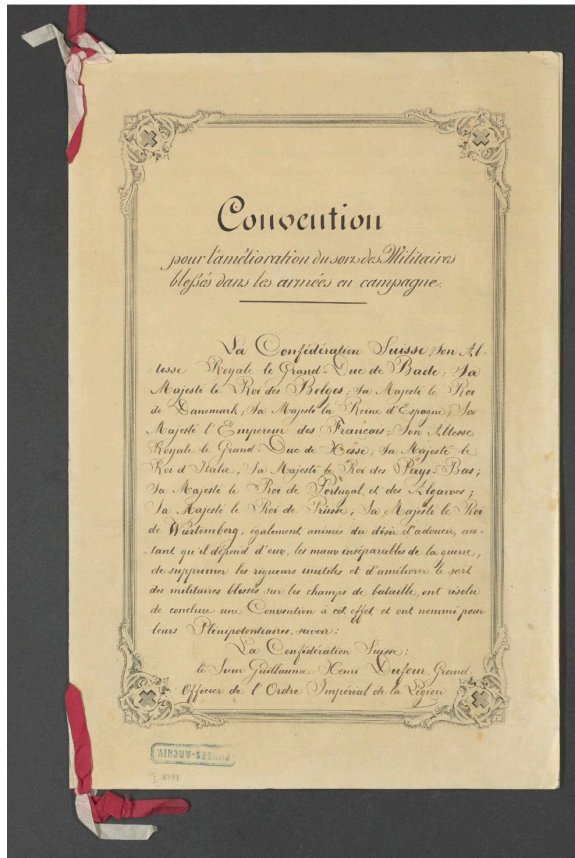 Convention
pour l'amélioration du sort des Militaires
blessés dans les armées en campagne.
La Confédération Suisse; Son Al-
tesse Royale le Grand-Duc de Bade; Sa
Majesté le Roi des Belges; Sa Majesté le Roi
de Danemark; Sa Majesté la Reine d'Espagne; Sa
Majesté l'Empereur des Français; Son Altesse
Royale le Grand-Duc de Hesse; Sa Majesté le
Roi d'Italie; Sa Majesté le Roi des Pays-Bas;
Sa Majesté le Roi de Portugal et des Algarves;
Sa Majesté le Roi de Prusse; Sa Majesté le Roi
de Würtemberg, également animés du désir d'adoucir, au-
tant qu'il dépend d'eux, les maux inséparables de la guerre,
de supprimer les rigueurs inutiles et d'améliorer le sort
des militaires blessés sur les champs de bataille, ont résolu
de conclure une Convention à cet effet et ont nommé pour
leurs Plénipotentiaires, savoir:
La Confédération Suisse:
le Sieur Guillaume-Henri Dufour Grand
Officier de l'Ordre Impérial de la Légion
BUNDES-ARCHIV.